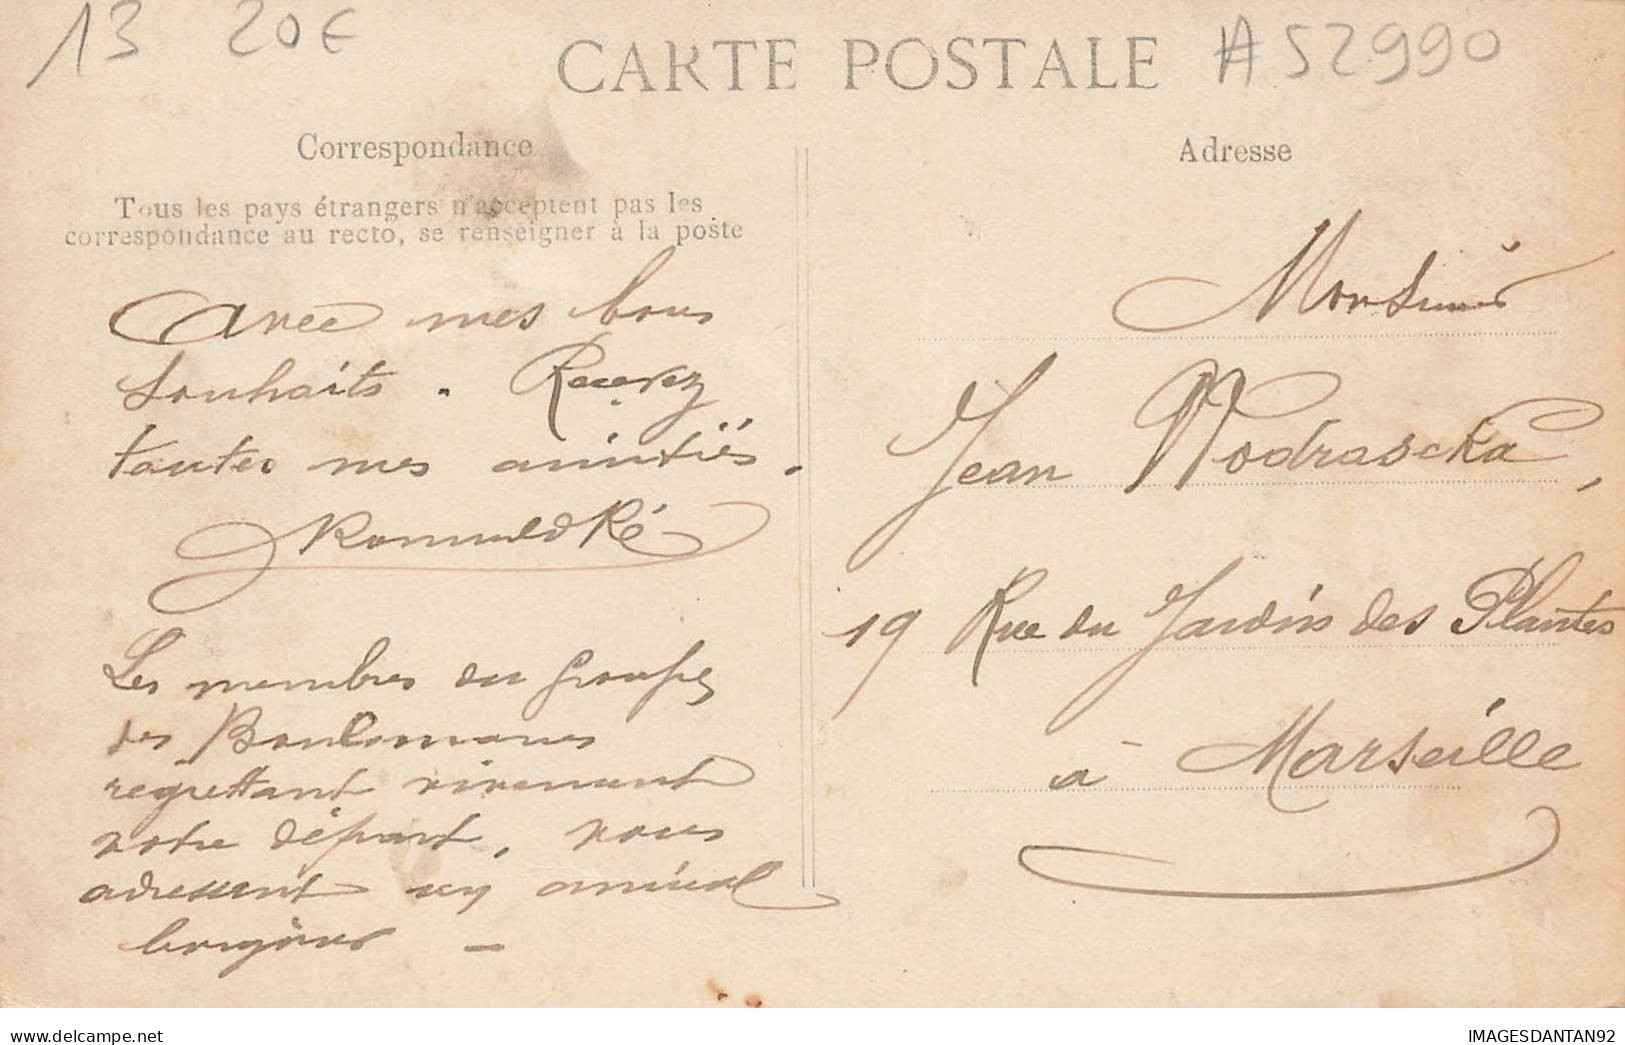 13 20€ A52990
CARTE POSTALE
Correspondance
Adresse
Tous les pays étrangers n'acceptent pas les
correspondance au recto, se renseigner à la poste
Avec mes bons
souhaits. Recevez
toutes mes amitiés.
Romuald Ré
Les membres du Groupe
des Boulomanes
regrettant vivement
votre départ, vous
adressent un amical
bonjour —
Monsieur
Jean Wodrascka,
19 Rue du Jardin des Plantes
à Marseille
delcampe.net
IMAGESDANTAN92